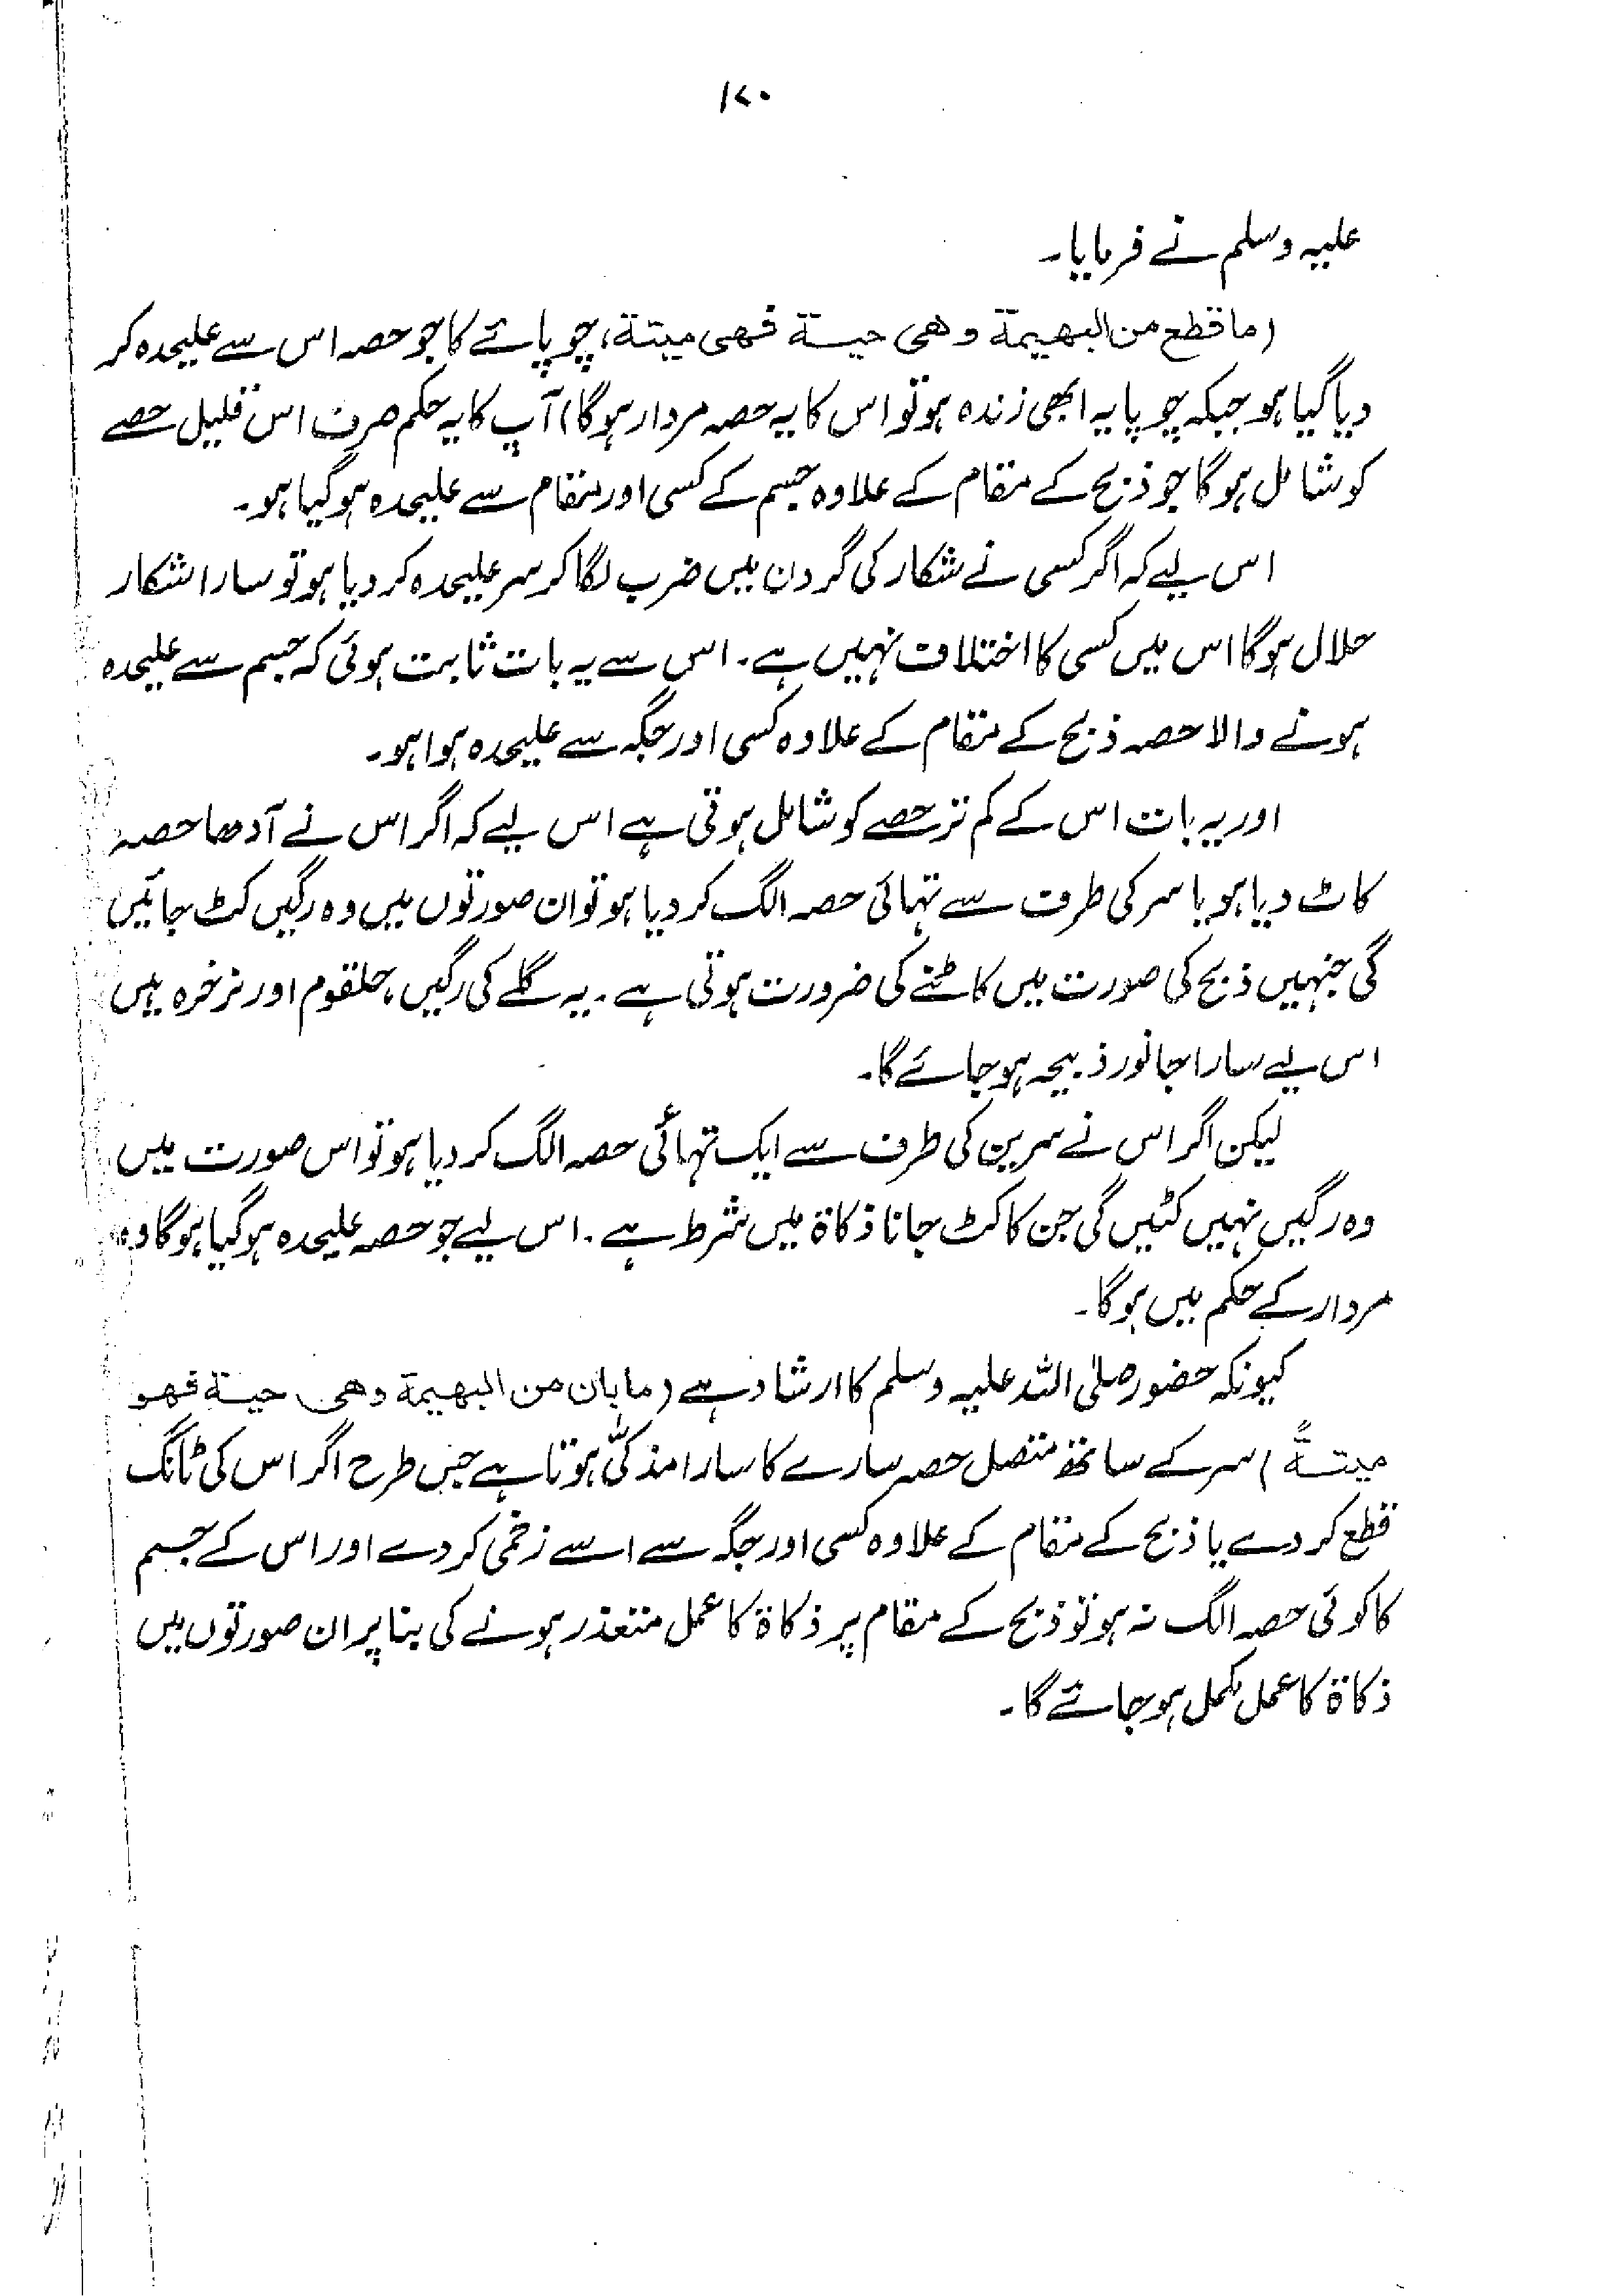 ۱۷۰
علیہ وسلم نے فرمایا۔
(ما قطع من البھیمة وھی حیة فھی میتة، چوپائے کا جو حصہ اس سے علیحدہ کر
دیا گیا ہو جبکہ چوپایہ ابھی زندہ ہو تو اس کا یہ حصہ مردار ہوگا) آپ کا یہ حکم صرف اس قلیل حصے
کو شامل ہوگا جو ذبح کے مقام کے علاوہ جسم کے کسی اور مقام سے علیحدہ ہوگیا ہو۔
اس لیے کہ اگر کسی نے شکار کی گردن میں ضرب لگا کر سر علیحدہ کر دیا ہو تو سارا شکار
حلال ہوگا اس میں کسی کا اختلاف نہیں ہے۔ اس سے یہ بات ثابت ہوئی کہ جسم سے علیحدہ
ہونے والا حصہ ذبح کے مقام کے علاوہ کسی اور جگہ سے علیحدہ ہوا ہو۔
اور یہ بات اس کے کم تر حصے کو شامل ہوتی ہے اس لیے کہ اگر اس نے آدھا حصہ
کاٹ دیا ہو یا سر کی طرف سے تہائی حصہ الگ کر دیا ہو تو ان صورتوں میں وہ رگیں کٹ جائیں
گی جنہیں ذبح کی صورت میں کاٹنے کی ضرورت ہوتی ہے۔ یہ گلے کی رگیں، حلقوم اور نرخرہ ہیں
اس لیے سارا جانور ذبیحہ ہو جائے گا۔
لیکن اگر اس نے سرین کی طرف سے ایک تہائی حصہ الگ کر دیا ہو تو اس صورت میں
وہ رگیں نہیں کٹیں گی جن کا کٹ جانا ذکاة میں شرط ہے۔ اس لیے جو حصہ علیحدہ ہوگیا ہوگا وہ
مردار کے حکم میں ہوگا۔
کیونکہ حضور صلی اللہ علیہ وسلم کا ارشاد ہے (ما بان من البھیمة وھی حیة فھو
میتةً) سر کے ساتھ متصل حصہ سارے کا سارا مذکّٰی ہوتا ہے جس طرح اگر اس کی ٹانگ
قطع کر دے یا ذبح کے مقام کے علاوہ کسی اور جگہ سے اسے زخمی کر دے اور اس کے جسم
کا کوئی حصہ الگ نہ ہو تو ذبح کے مقام پر ذکاة کا عمل متعذر ہونے کی بنا پر ان صورتوں میں
ذکاة کا عمل مکمل ہو جائے گا۔